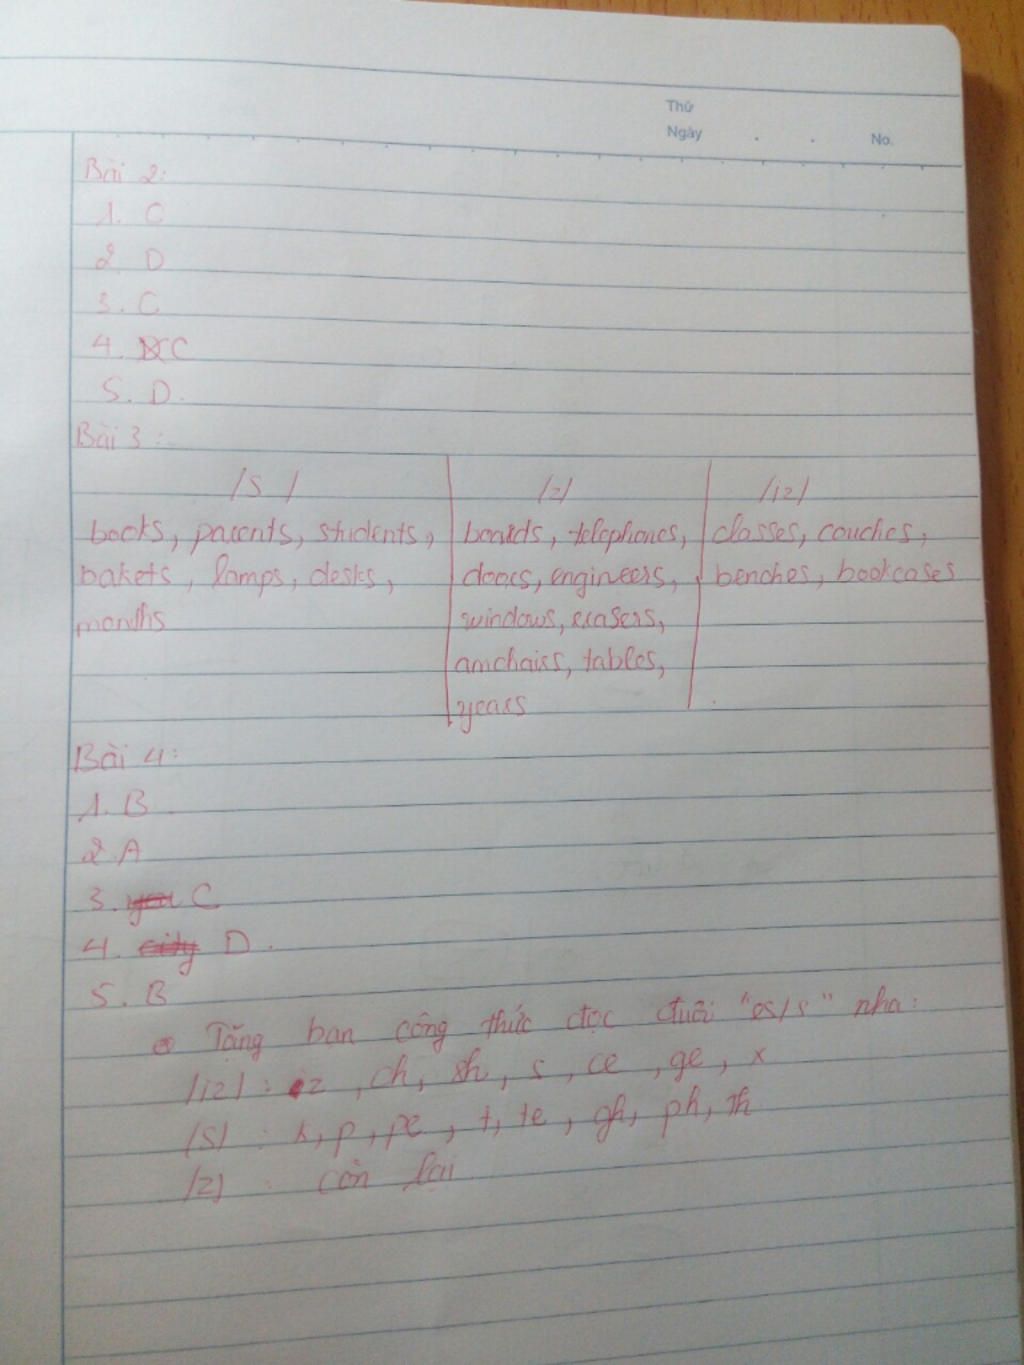 Thứ
Ngày . . No.
Bài 2:
1. C
2. D
3. C
4. C
5. D.
Bài 3:
/s/ /z/ /iz/
books, parents, students, boards, telephones, classes, couches,
bakets, lamps, desks, doors, engineers, benches, bookcases
months windows, erasers,
amchairs, tables,
years
Bài 4:
1. B.
2. A
3. you C
4. city D.
5. B
Tặng bạn công thức đọc đuôi "es/s" nha:
/iz/: z, ch, sh, s, ce, ge, x
/s/: k, p, pe, t, te, gh, ph, th
/z/: còn lại